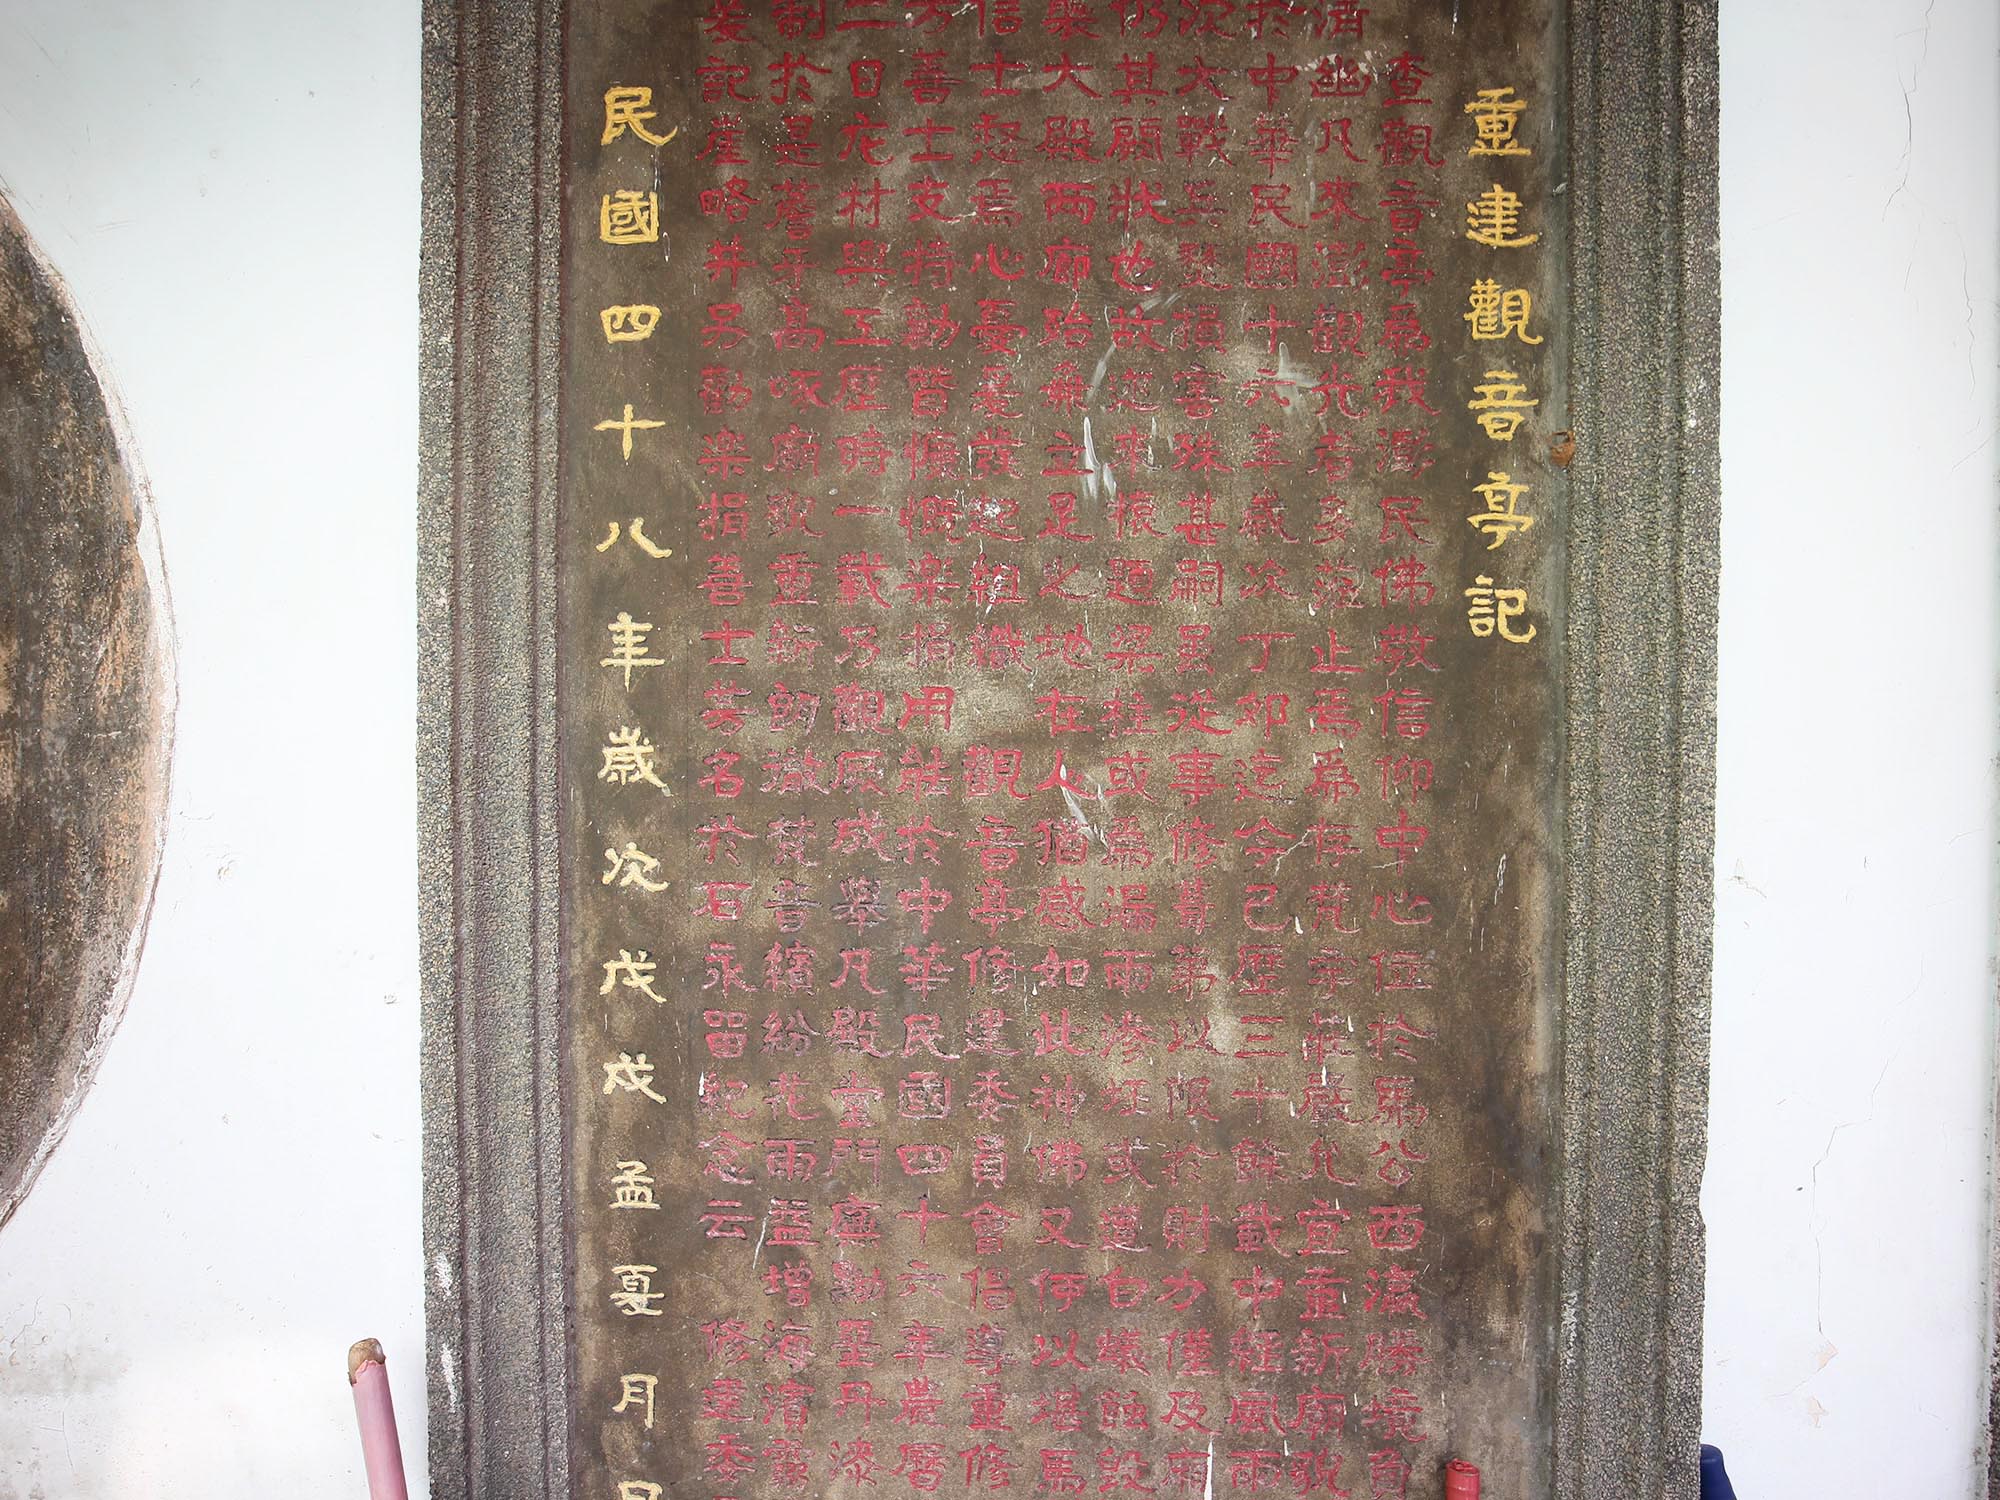 重建觀音亭記
查觀音亭為我澎民佛教信仰中心位於馬公西瀛勝境負
濟幽凡來澎觀光者多蒞止焉為存梵宇莊嚴允宜重新廟貌
於中華民國十六年歲次丁卯迄今已歷三十餘載中經風雨
次大戰兵燹損害殊甚嗣虽從事修葺第以限於財力僅及廂
仍其願狀也故迩來榱題梁柱或為漏雨滲圬或遭白蟻蝕毀
襄大殿两廊殆無立足之地在人猶感如此神佛又何以堪馬
信士怒焉心憂爰發起組織觀音亭修建委員會倡導重修
方善士支持勷贊慷慨樂捐用能於中華民國四十六年農曆
二日庀材興工歷時一載乃觀厥成舉凡殿堂門廡黝堊丹漆
制於是簷牙高啄廟貌重新韵澂梵音繽紛花雨益增海濱靄
爰記崖略并另勸樂捐善士芳名於石永留紀念云 修建委
民國四十八年歲次戊戌孟夏月